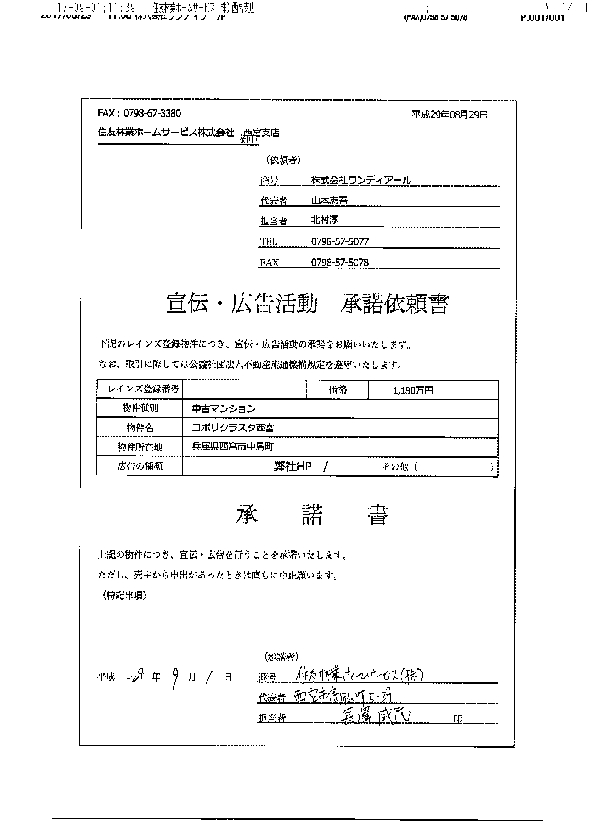 17-09-01;11:38 ;住友林業ホームサービス ㈱西宮
FAX：0798-67-3380
平成29年08月29日
住友林業ホームサービス株式会社 西宮支店
御中
（依頼者）
商号 株式会社ランディアール
代表者
担当者
TEL 0798-57-5077
FAX 0798-57-5078
宣伝・広告活動 承諾依頼書
下記のレインズ登録物件につき、宣伝・広告活動の承諾をお願いいたします。
なお、取引に際しては公益社団法人不動産流通機構規定を遵守いたします。
レインズ登録番号 価格 1,180万円
物件種別 中古マンション
物件名 コボリクラスタ西宮
物件所在地 兵庫県西宮市中島町
広告の種類 弊社HP / その他（ ）
承 諾 書
上記の物件につき、宣伝・広告を行うことを承諾いたします。
ただし、売主から申出があったときは直ちに中止願います。
（特記事項）
（承諾者）
平成 29 年 9 月 1 日 商号 住友林業ホームサービス(株)
代表者
担当者 印